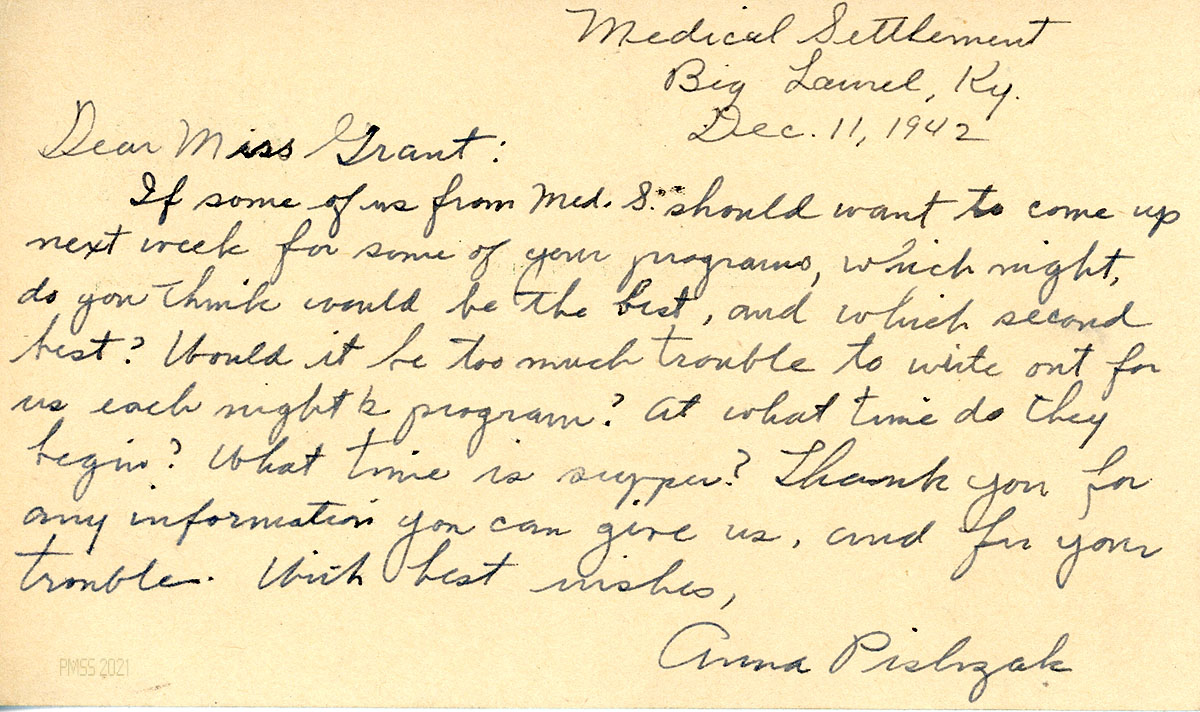 Medical Settlement
Big Laurel, Ky.
Dec. 11, 1942
Dear Miss Grant:
If some of us from Med. S. should want to come up
next week for some of your programs, which night,
do you think would be the best, and which second
best? Would it be too much trouble to write out for
us each night's program? At what time do they
begin? What time is supper? Thank you for
any information you can give us, and for your
trouble. With best wishes,
Anna
PMSS 2021